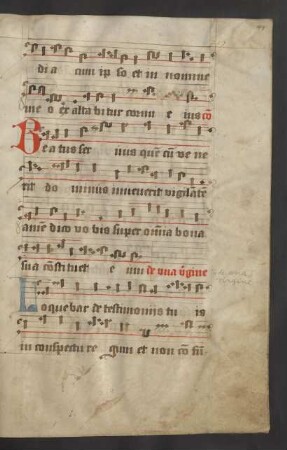 dia cum ip so et in nomine
me o ex alta bi tur cornu e ius co
Be a tus ser uus quē cū ve ne
rit do minus inuenerit vigilātē
amē dico vo bis super omīa bona
sua cōstituet e um de una v̄gine
Lo quebar de testimoniis tu is
in conspectu re gum et non cō fū